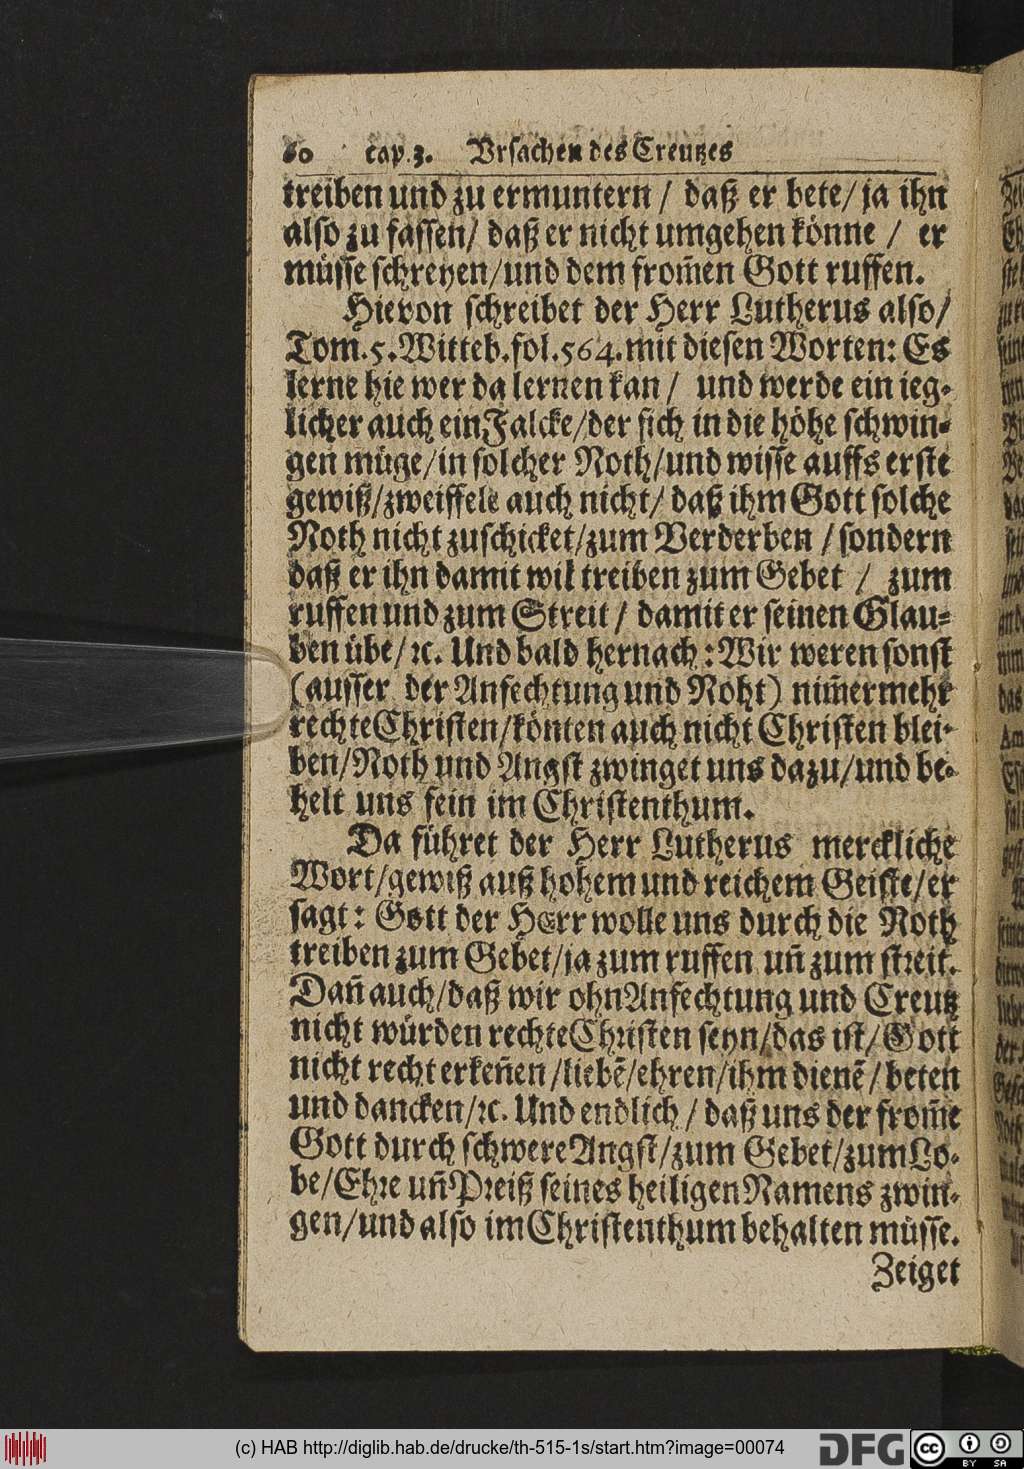 60 cap. 3. Vrsachen des Creutzes
treiben und zu ermuntern / daß er bete/ ja ihn
also zu fassen/ daß er nicht umgehen könne / er
müsse schreyen/und dem from̄en Gott ruffen.
Hievon schreibet der Herr Lutherus also/
Tom. 5. Witteb. fol. 564. mit diesen Worten: Es
lerne hie wer da lernen kan / und werde ein ieg-
licher auch ein Falcke/der sich in die höhe schwin-
gen müge/in solcher Noth/und wisse auffs erste
gewiß/zweiffele auch nicht/ daß ihm Gott solche
Noth nicht zuschicket/zum Verderben / sondern
daß er ihn damit wil treiben zum Gebet / zum
ruffen und zum Streit / damit er seinen Glau-
ben übe/ ꝛc. Und bald hernach : Wir weren sonst
(ausser der Anfechtung und Noht) nim̄ermehr
rechte Christen/könten auch nicht Christen blei-
ben/Noth und Angst zwinget uns dazu/und be-
helt uns fein im Christenthum.
Da führet der Herr Lutherus merckliche
Wort/gewiß auß hohem und reichem Geiste/er
sagt: Gott der HErr wolle uns durch die Noth
treiben zum Gebet/ja zum ruffen uñ zum streit.
Dañ auch/daß wir ohn Anfechtung und Creutz
nicht würden rechte Christen seyn/das ist/Gott
nicht recht erkeñen /liebē/ehren/ihm dienē / beten
und dancken/ꝛc. Und endlich / daß uns der from̄e
Gott durch schwere Angst/zum Gebet/zum Lo-
be/Ehre uñ Preiß seines heiligen Namens zwin-
gen/und also im Christenthum behalten müsse.
Zeiget
(c) HAB http://diglib.hab.de/drucke/th-515-1s/start.htm?image=00074
DFG
cc BY SA